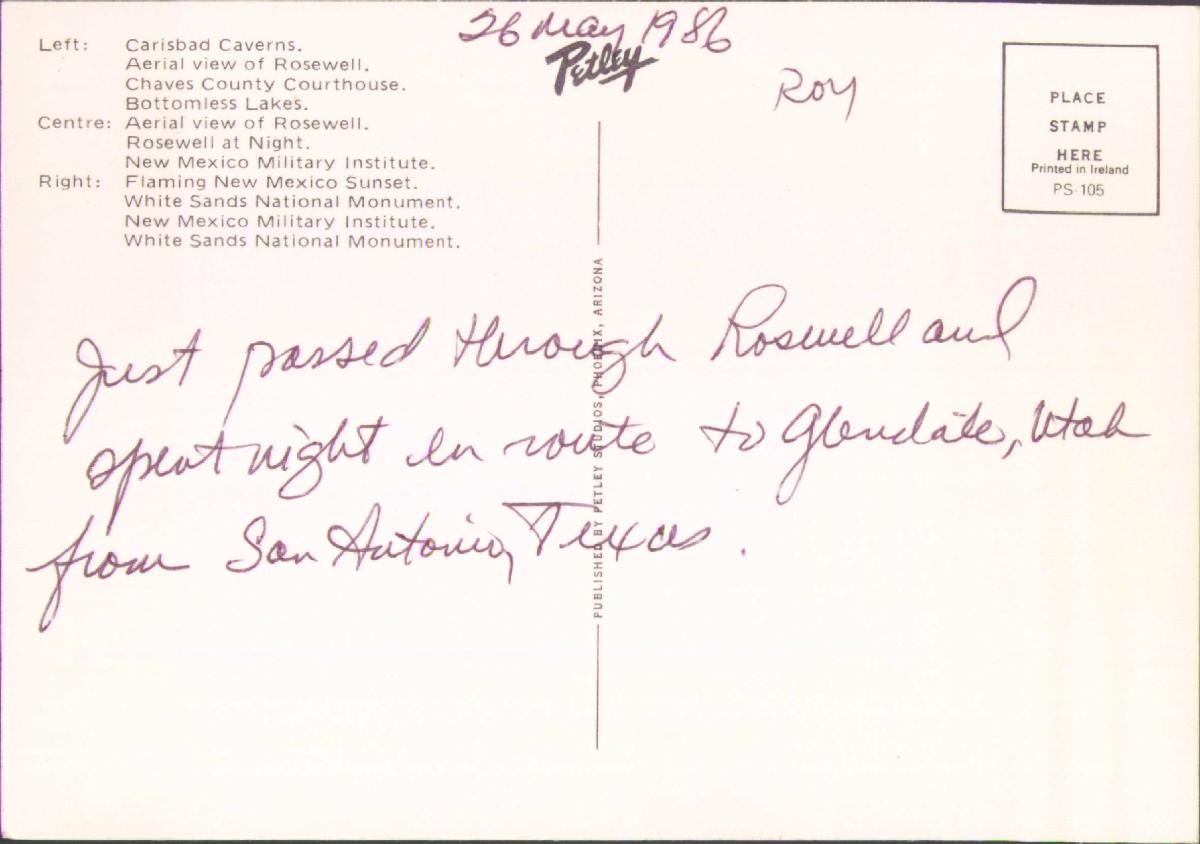 26 May 1986
Petley
Roy
Left: Carisbad Caverns.
Aerial view of Rosewell.
Chaves County Courthouse.
Bottomless Lakes.
Centre: Aerial view of Rosewell.
Rosewell at Night.
New Mexico Military Institute.
Right: Flaming New Mexico Sunset.
White Sands National Monument.
New Mexico Military Institute.
White Sands National Monument.
PLACE
STAMP
HERE
Printed in Ireland
PS-105
Just passed through Roswell and
spent night en route to Glendale, Utah
from San Antonio, Texas.
PUBLISHED BY PETLEY STUDIOS, PHOENIX, ARIZONA